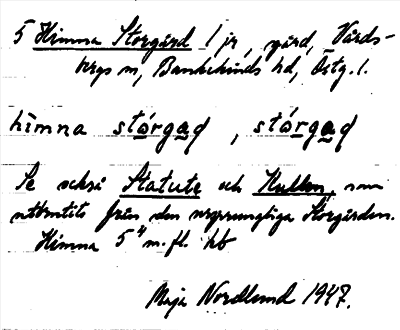 5 Himna Storgård 1 jr, gård, Vårds-
bergs sn, Bankekinds hd, Östg. l.
himna stórgaɖ, stórgaɖ
Se också Statute och Kullen, som
utbrutits från den ursprungliga Storgården.
Himna 5⁴ m. fl. kb
Maja Nordlund 1947.